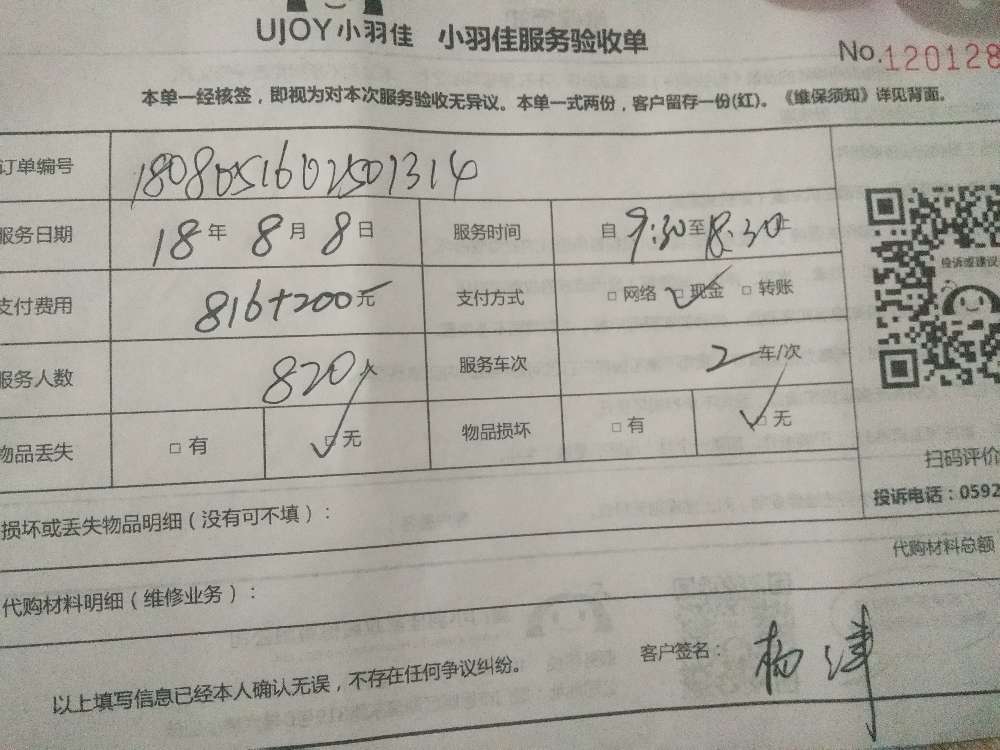 UJOY小羽佳 小羽佳服务验收单
No.120128
本单一经核签，即视为对本次服务验收无异议。本单一式两份，客户留存一份(红)。《维保须知》详见背面。
订单编号 1808051602501314
服务日期 18年 8月 8日 服务时间 自9:30至18:30止
支付费用 816+200元 支付方式 □网络 □现金 □转账
服务人数 820人 服务车次 2车/次
物品丢失 □有 □无 物品损坏 □有 □无
投诉或建议
扫码评价
投诉电话：0592
损坏或丢失物品明细（没有可不填）：
代购材料明细（维修业务）：
代购材料总额
以上填写信息已经本人确认无误，不存在任何争议纠纷。
客户签名：杨津